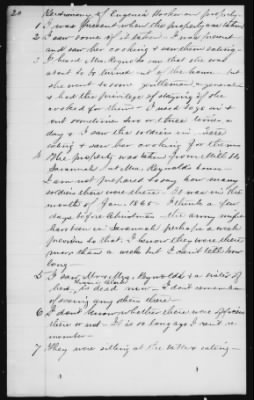 20 Testimony of Eugenia Hooker on property
1 I was present when the property was taken
2 I saw some of it taken. I was present
and saw her cooking & saw them eating—
3 I heard Mrs. Reynolds say that she was
about to be turned out of the house but
she went to some gentleman
& had the privilege of staying if she
cooked for them. I used to go in &
out sometimes two or three times a
day & I saw the soldiers in there
eating & saw her cooking for them
4 The property was taken from
Savannah, at Mrs. Reynolds home—
I am not prepared to say how many
soldiers there were there. It was in the
month of Jan. 1865. I think a few
days before Christmas the army
have been in Savannah perhaps a week
previous to that. I know they were there
more than a week but I can't tell how
long
5 I saw Mr & Mrs. Reynolds & a sister of
hers is dead now— I don't remember
of seeing any others there
6 I don't know whether there were officers
there or not— It is so long ago I can't re-
member—
7 They were sitting at the table & eating—